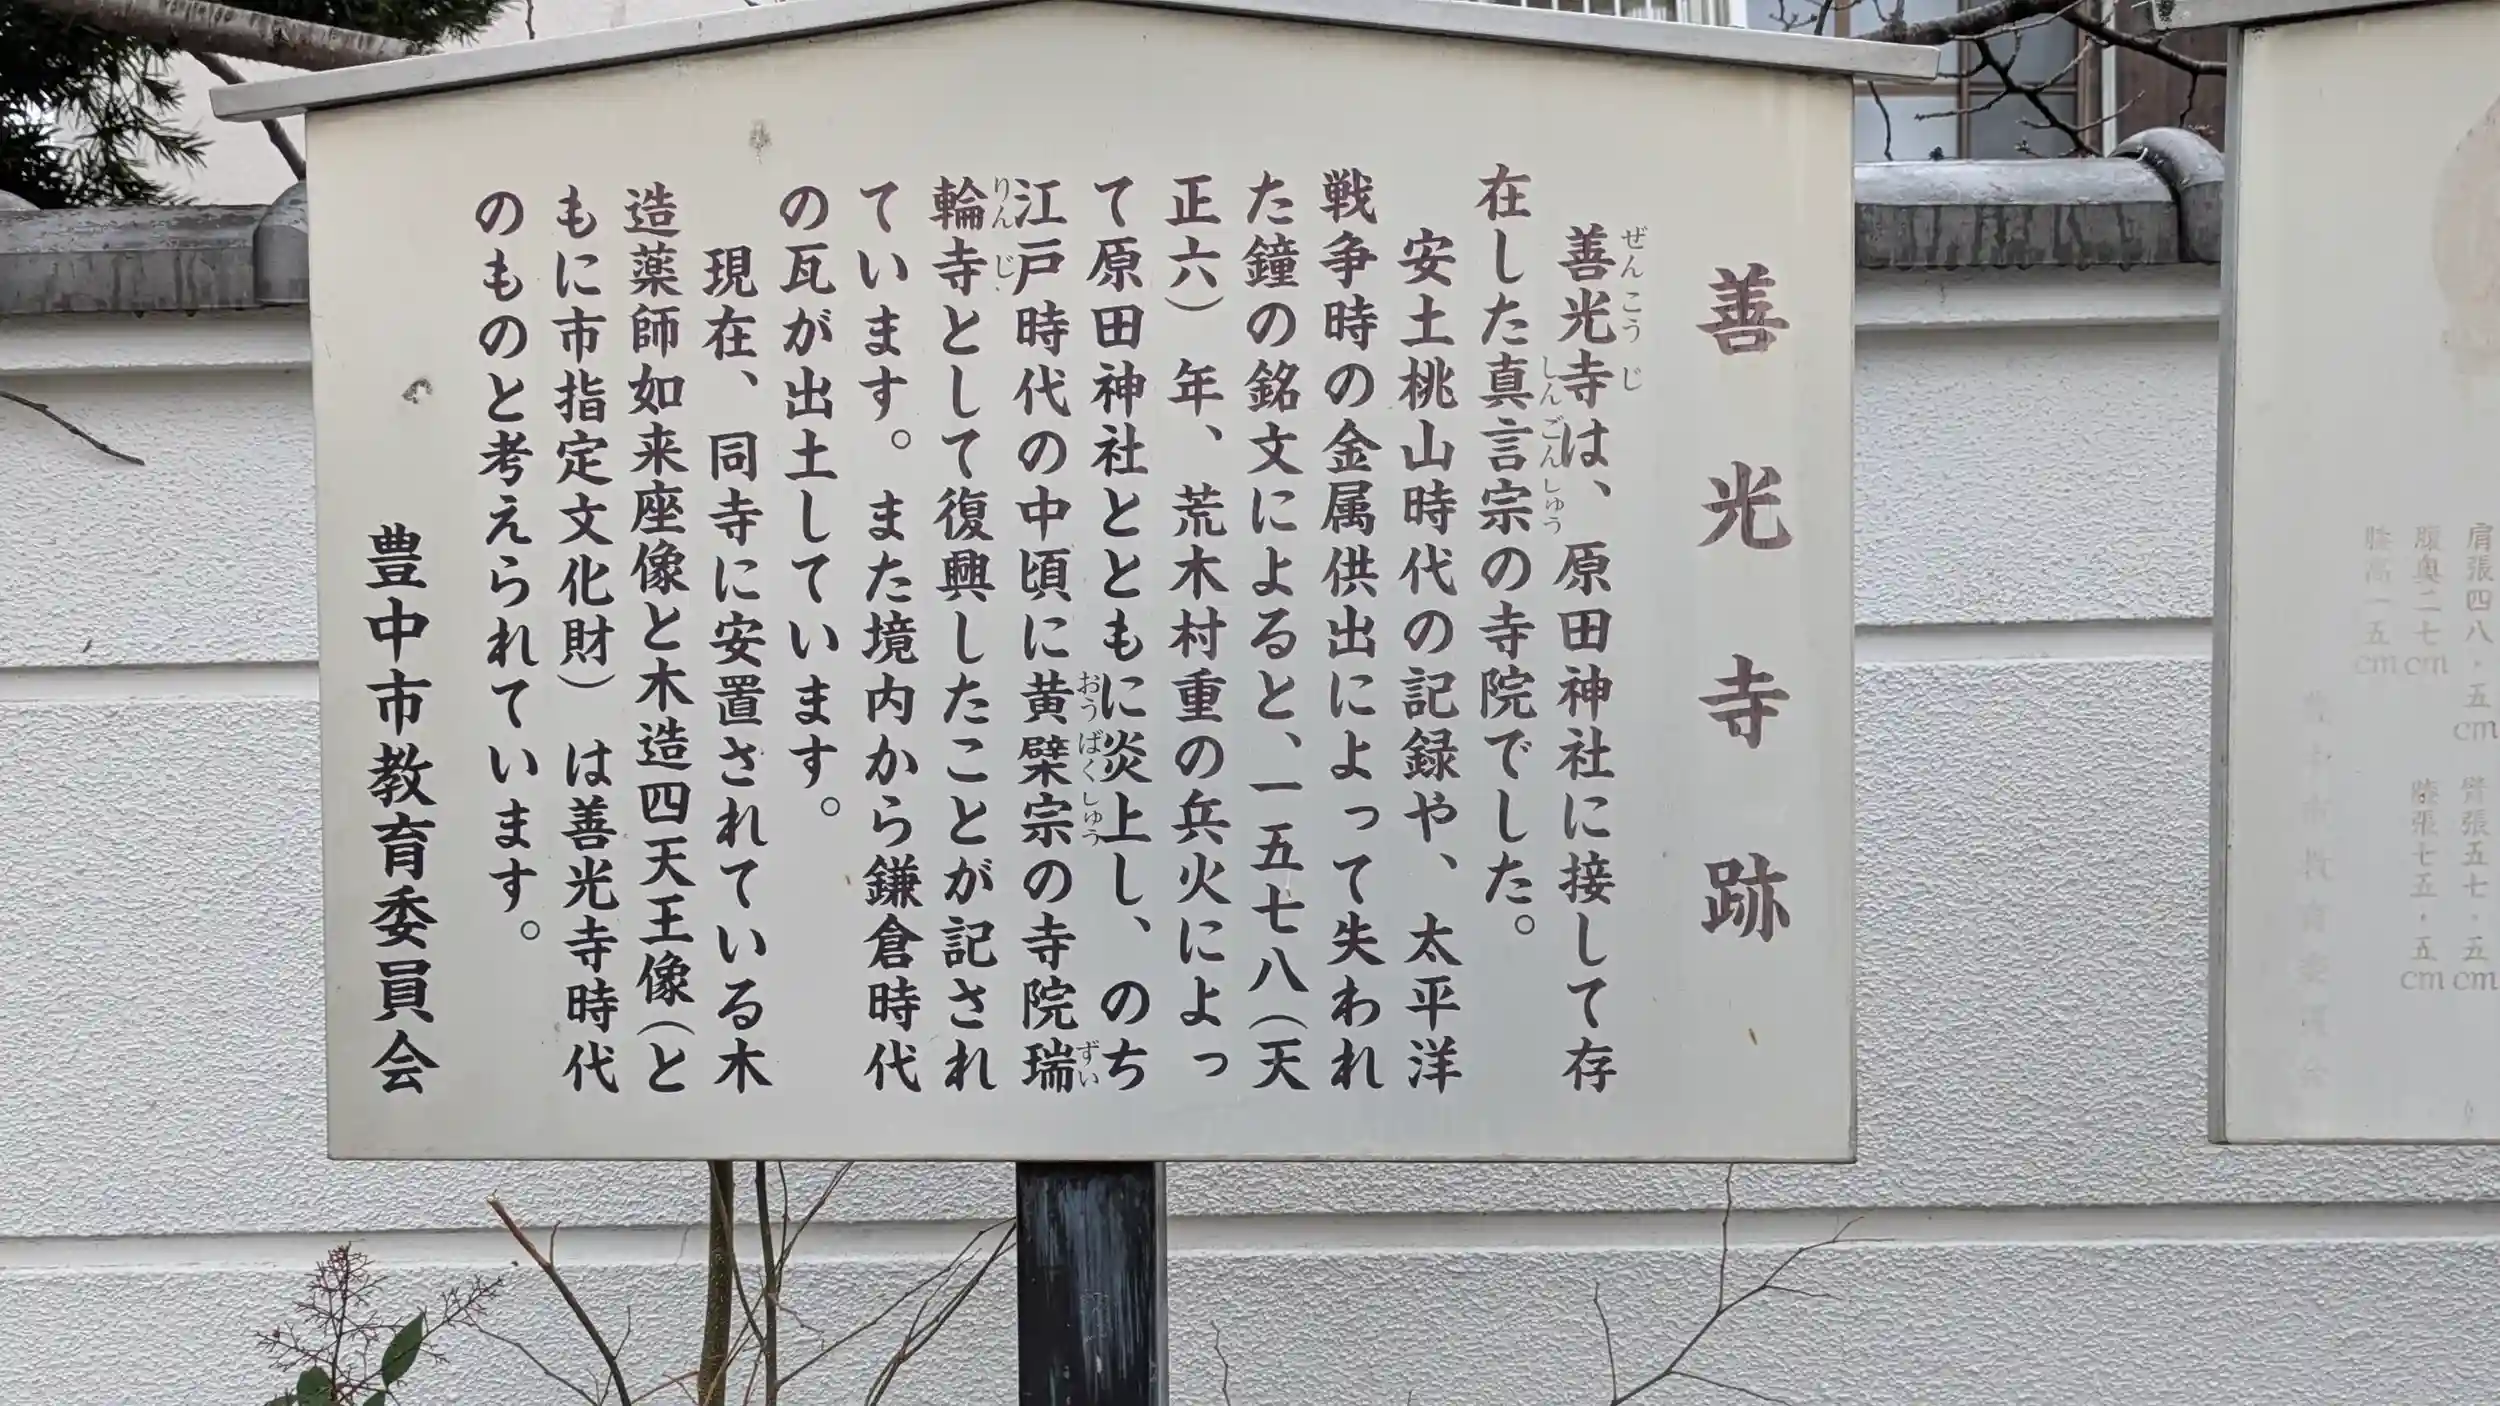 善光寺跡
善光寺は、原田神社に接して存
ぜんこうじ
在した真言宗の寺院でした。
しんごんしゅう
安土桃山時代の記録や、太平洋
戦争時の金属供出によって失われ
た鐘の銘文によると、一五七八(天
正六)年、荒木村重の兵火によっ
て原田神社とともに炎上し、のち
江戸時代の中頃に黄檗宗の寺院瑞
おうばくしゅう ずい
輪寺として復興したことが記され
りんじ
ています。また境内から鎌倉時代
の瓦が出土しています。
現在、同寺に安置されている木
造薬師如来座像と木造四天王像(と
もに市指定文化財)は善光寺時代
のものと考えられています。
豊中市教育委員会
肩張四八・五cm 臂張五七・五cm
腹奥二七cm 膝張七五・五cm
膝高一五cm